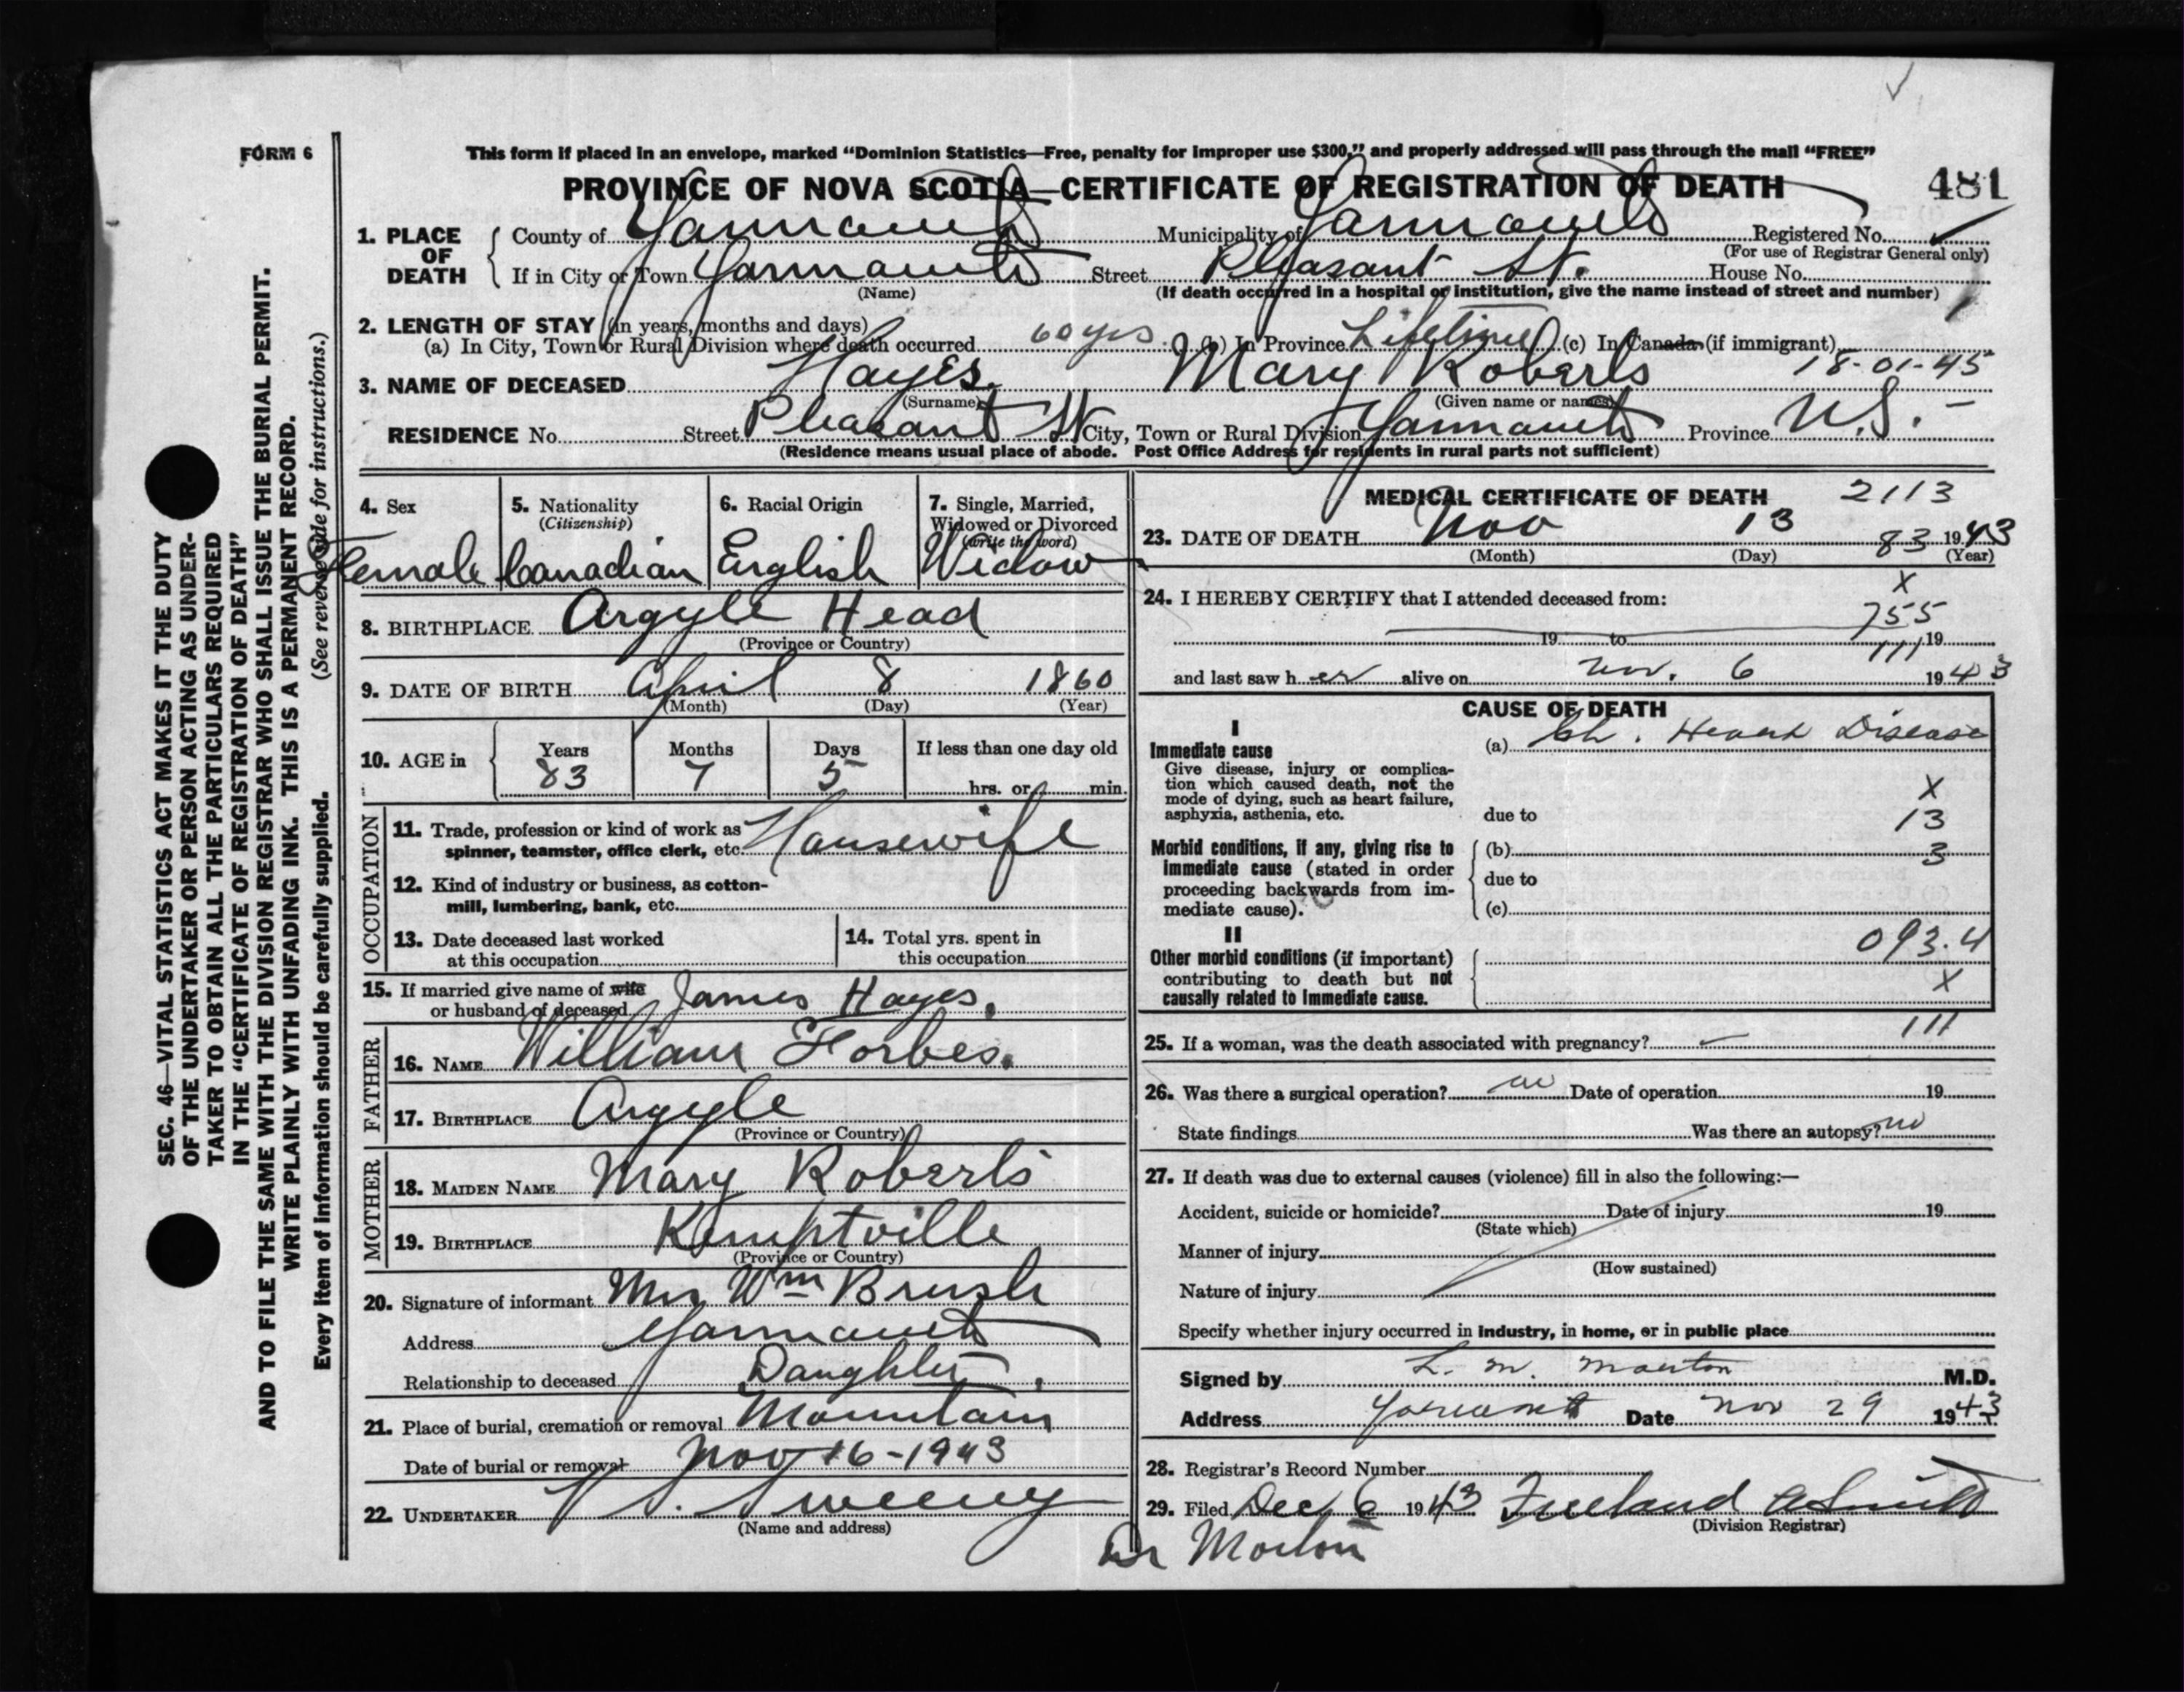 FORM 6
This form if placed in an envelope, marked “Dominion Statistics—Free, penalty for improper use $300,” and properly addressed will pass through the mail “FREE”
PROVINCE OF NOVA SCOTIA—CERTIFICATE OF REGISTRATION OF DEATH 481
1. PLACE OF DEATH
County of Yarmouth Municipality of Yarmouth Registered No.
(For use of Registrar General only)
If in City or Town Yarmouth Street Pleasant St. House No.
(Name) (If death occurred in a hospital or institution, give the name instead of street and number)
2. LENGTH OF STAY (in years, months and days)
(a) In City, Town or Rural Division where death occurred 60 yrs (b) In Province Lifetime (c) In Canada (if immigrant)
18-01-45
3. NAME OF DECEASED Hayes. Mary Roberts
(Surname) (Given name or names)
RESIDENCE No. Street Pleasant St City, Town or Rural Division Yarmouth Province N.S. -
(Residence means usual place of abode. Post Office Address for residents in rural parts not sufficient)
4. Sex
Female
5. Nationality
(Citizenship)
Canadian
6. Racial Origin
English
7. Single, Married,
Widowed or Divorced
(write the word)
Widow
8. BIRTHPLACE Argyle Head
(Province or Country)
9. DATE OF BIRTH April 8 1860
(Month) (Day) (Year)
10. AGE in Years Months Days If less than one day old
83 7 5 hrs. or min.
OCCUPATION
11. Trade, profession or kind of work as
spinner, teamster, office clerk, etc. Housewife
12. Kind of industry or business, as cotton-
mill, lumbering, bank, etc.
13. Date deceased last worked
at this occupation
14. Total yrs. spent in
this occupation
15. If married give name of wife
or husband of deceased James Hayes.
FATHER
16. NAME William Forbes.
17. BIRTHPLACE Argyle
(Province or Country)
MOTHER
18. MAIDEN NAME Mary Roberts
19. BIRTHPLACE Kemptville
(Province or Country)
20. Signature of informant Mrs Wm Brush
Address Yarmouth
Relationship to deceased Daughter.
21. Place of burial, cremation or removal Mountain
Date of burial or removal Nov 16-1943
22. UNDERTAKER V S. Sweeny
(Name and address)
MEDICAL CERTIFICATE OF DEATH 2113
23. DATE OF DEATH Nov 13 83 1943
(Month) (Day) (Year)
X
24. I HEREBY CERTIFY that I attended deceased from:
755
19 to 19
111
and last saw her alive on Nov. 6 1943
CAUSE OF DEATH
I
Immediate cause
(a) Ch. Heart Disease
Give disease, injury or complica-
tion which caused death, not the
mode of dying, such as heart failure,
asphyxia, asthenia, etc.
X
due to 13
Morbid conditions, if any, giving rise to
immediate cause (stated in order
proceeding backwards from im-
mediate cause).
(b) 3
due to
(c)
II
Other morbid conditions (if important)
contributing to death but not
causally related to immediate cause.
093.4
X
111
25. If a woman, was the death associated with pregnancy?
26. Was there a surgical operation? no Date of operation 19
State findings Was there an autopsy? no
27. If death was due to external causes (violence) fill in also the following:—
Accident, suicide or homicide? Date of injury 19
(State which)
Manner of injury
(How sustained)
Nature of injury
Specify whether injury occurred in industry, in home, or in public place
Signed by L. M. Morton M.D.
Address Yarmouth Date Nov 29 1943
28. Registrar's Record Number
29. Filed Dec 6 1943 Freeland A Smith
(Division Registrar)
Dr Morton
SEC. 46—VITAL STATISTICS ACT MAKES IT THE DUTY
OF THE UNDERTAKER OR PERSON ACTING AS UNDER-
TAKER TO OBTAIN ALL THE PARTICULARS REQUIRED
IN THE “CERTIFICATE OF REGISTRATION OF DEATH”
AND TO FILE THE SAME WITH THE DIVISION REGISTRAR WHO SHALL ISSUE THE BURIAL PERMIT.
WRITE PLAINLY WITH UNFADING INK. THIS IS A PERMANENT RECORD.
Every item of information should be carefully supplied. (See reverse side for instructions.)